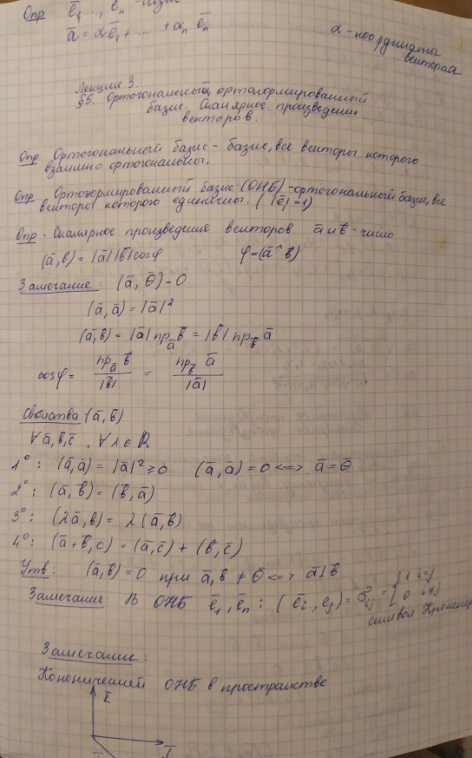 Опр ē₁, ..., ēₙ - базис
ā = αē₁ + ... + αₙēₙ
α - координаты
вектора
Лекция 3.
§5. Ортогональный, ортонормированный
базис. Скалярное произведение
векторов.
Опр Ортогональный базис - базис, все векторы которого
взаимно ортогональны.
Опр. Ортонормированный базис (ОНБ) - ортогональный базис, все
векторы которого единичны. (|ē|=1)
Опр. Скалярное произведение векторов ā и b̄ - число
(ā, b̄) = |ā||b̄|cosφ φ = (ā^b̄)
Замечание: (ā, θ̄) = 0
(ā, ā) = |ā|²
(ā, b̄) = |ā| пр_ā b̄ = |b̄| пр_b̄ ā
cosφ = пр_ā b̄ / |b̄| = пр_b̄ ā / |ā|
Свойства (ā, b̄)
∀ ā, b̄, c̄, ∀ λ ∈ R
1°: (ā, ā) = |ā|² ≥ 0 (ā, ā) = 0 <=> ā = θ̄
2°: (ā, b̄) = (b̄, ā)
3°: (λā, b̄) = λ(ā, b̄)
4°: (ā + b̄, c) = (ā, c̄) + (b̄, c̄)
Утв: (ā, b̄) = 0 при ā, b̄ ≠ θ <=> ā ⊥ b̄
Замечание: В ОНБ ē₁, ēₙ: (ēᵢ, ēⱼ) = δᵢⱼ = { 1 i=j
0 i≠j
символ
Замечание:
Канонический ОНБ в пространстве